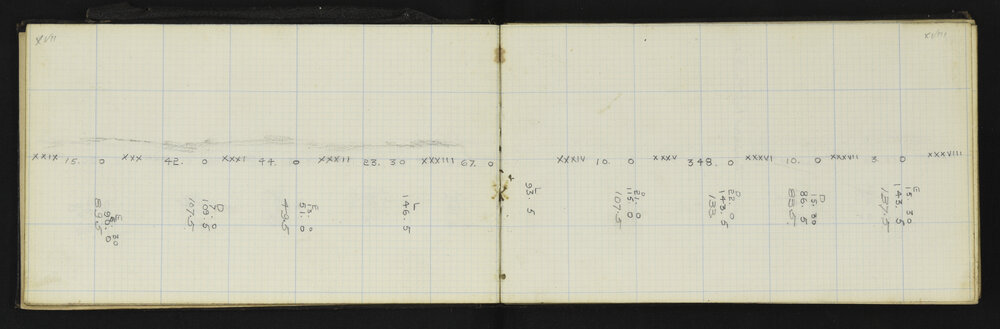 XVII
XVIII
XXIX 15. 0 XXX 42. 0 XXXI 44. 0 XXXII 23. 30 XXXIII 67. 0
XXXIV 10. 0 XXXV 348. 0 XXXVI 10. 0 XXXVII 3. 0 XXXVIII
E
96. 0
89.5
D
7. 0
109. 5
107.5
E
51. 0
49.5
L
146. 5
L
93. 5
D
21. 0
115. 0
107.5
D
22. 0
143. 5
133
D
15. 30
86. 5
82.5
E
15. 30
143. 5
137.5